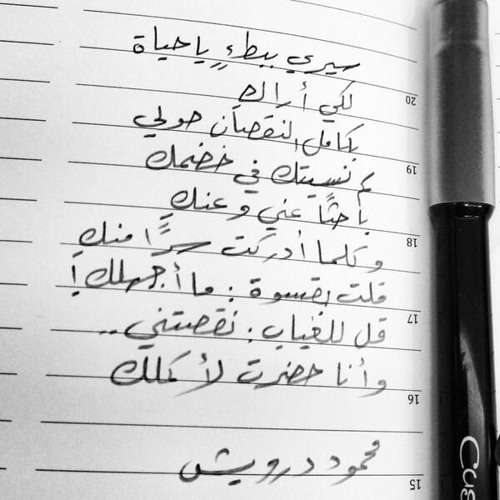 سيري ببطءٍ يا حياة
لكي أراكِ
بكامل النقصان حولي
كم نسيتك في خضمك
باحثاً عني وعنكِ
وكلما أدركت سرًّا منكِ
قلت بقسوة : ما أجهلك !
قل للغياب : نقصتني ..
وأنا حضرت لأكملك
محمود درويش
20
19
18
17
16
15
Cus